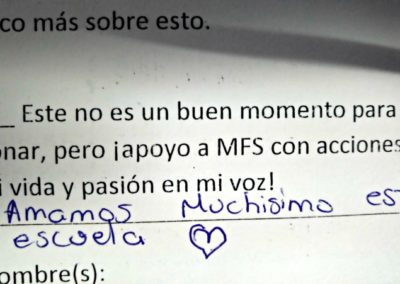 co más sobre esto.
__ Este no es un buen momento para
onar, pero ¡apoyo a MFS con acciones
i vida y pasión en mi voz!
Amamos Muchisimo es
escuela ♡
ombre(s):